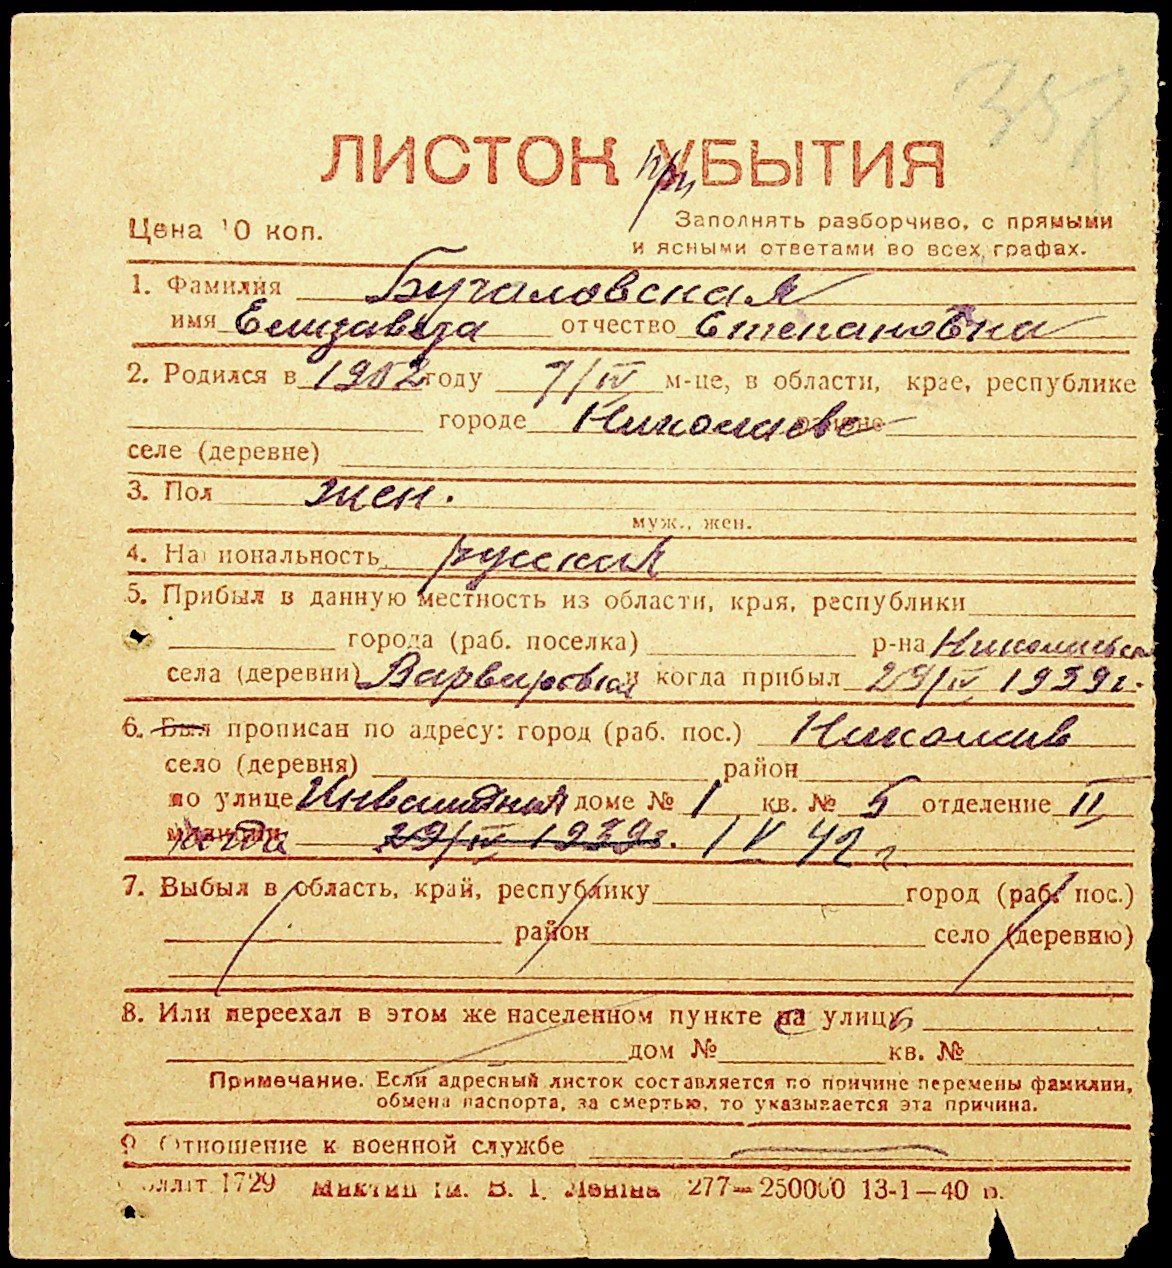 357
ЛИСТОК УБЫТИЯ
при
Цена 10 коп.
Заполнять разборчиво, с прямыми
и ясными ответами во всех графах.
1. Фамилия Бугаловская
имя Елизавета отчество Степановна
2. Родился в 1902 году 7/IV м-це, в области, крае, республике
городе Николаеве районе
селе (деревне)
3. Пол жен.
муж., жен.
4. Национальность русская
5. Прибыл в данную местность из области, края, республики
города (раб. поселка) р-на Николаевск
села (деревни) Варваровка и когда прибыл 29/IV 1939 г.
6. Был прописан по адресу: город (раб. пос.) Николаев
село (деревня) район
по улице доме № 1 кв. № 5 отделение II
милиции когда 29/IV 1939г. 1 V 42 г
7. Выбыл в область, край, республику город (раб. пос.)
район село (деревню)
8. Или переехал в этом же населенном пункте на улицу
дом № кв. №
Примечание. Если адресный листок составляется по причине перемены фамилии,
обмена паспорта, за смертью, то указывается эта причина.
9. Отношение к военной службе
1729 277—250000 13-1—40 р.